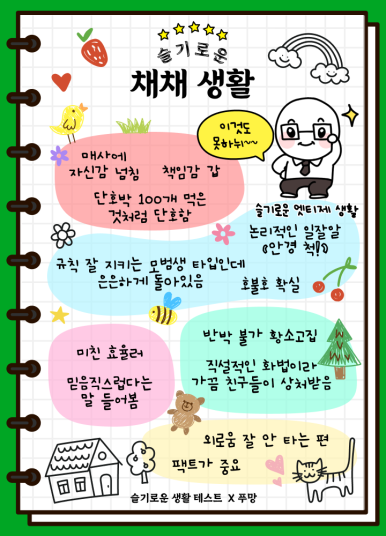 슬기로운
채채 생활
이것도
못하눠~~
매사에
자신감 넘침 책임감 갑
단호박 100개 먹은
것처럼 단호함
슬기로운 엣티제 생활
논리적인 일잘알
(안경 척!)
규칙 잘 지키는 모범생 타입인데
은은하게 돌아있음
호불호 확실
미친 효율러
믿음직스럽다는
말 들어봄
반박 불가 황소고집
직설적인 화법이라
가끔 친구들이 상처받음
외로움 잘 안 타는 편
팩트가 중요
슬기로운 생활 테스트 X 푸망